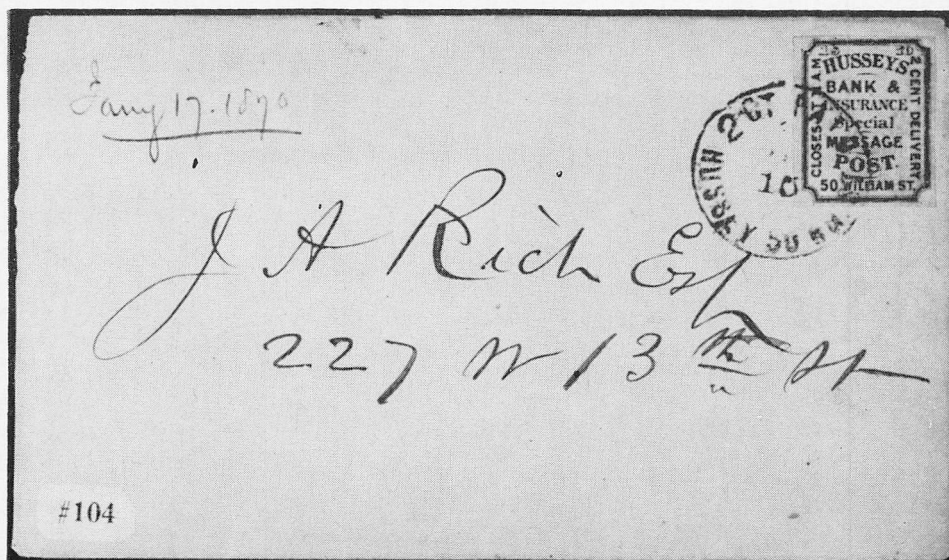 Jany 17. 1870
HUSSEY'S
BANK &
INSURANCE
Special
MESSAGE
POST.
50 WILLIAM ST.
CLOSES AT
2 CENT DELIVERY
HUSSEY 50
J A Rich Esq
227 W 13th St
#104